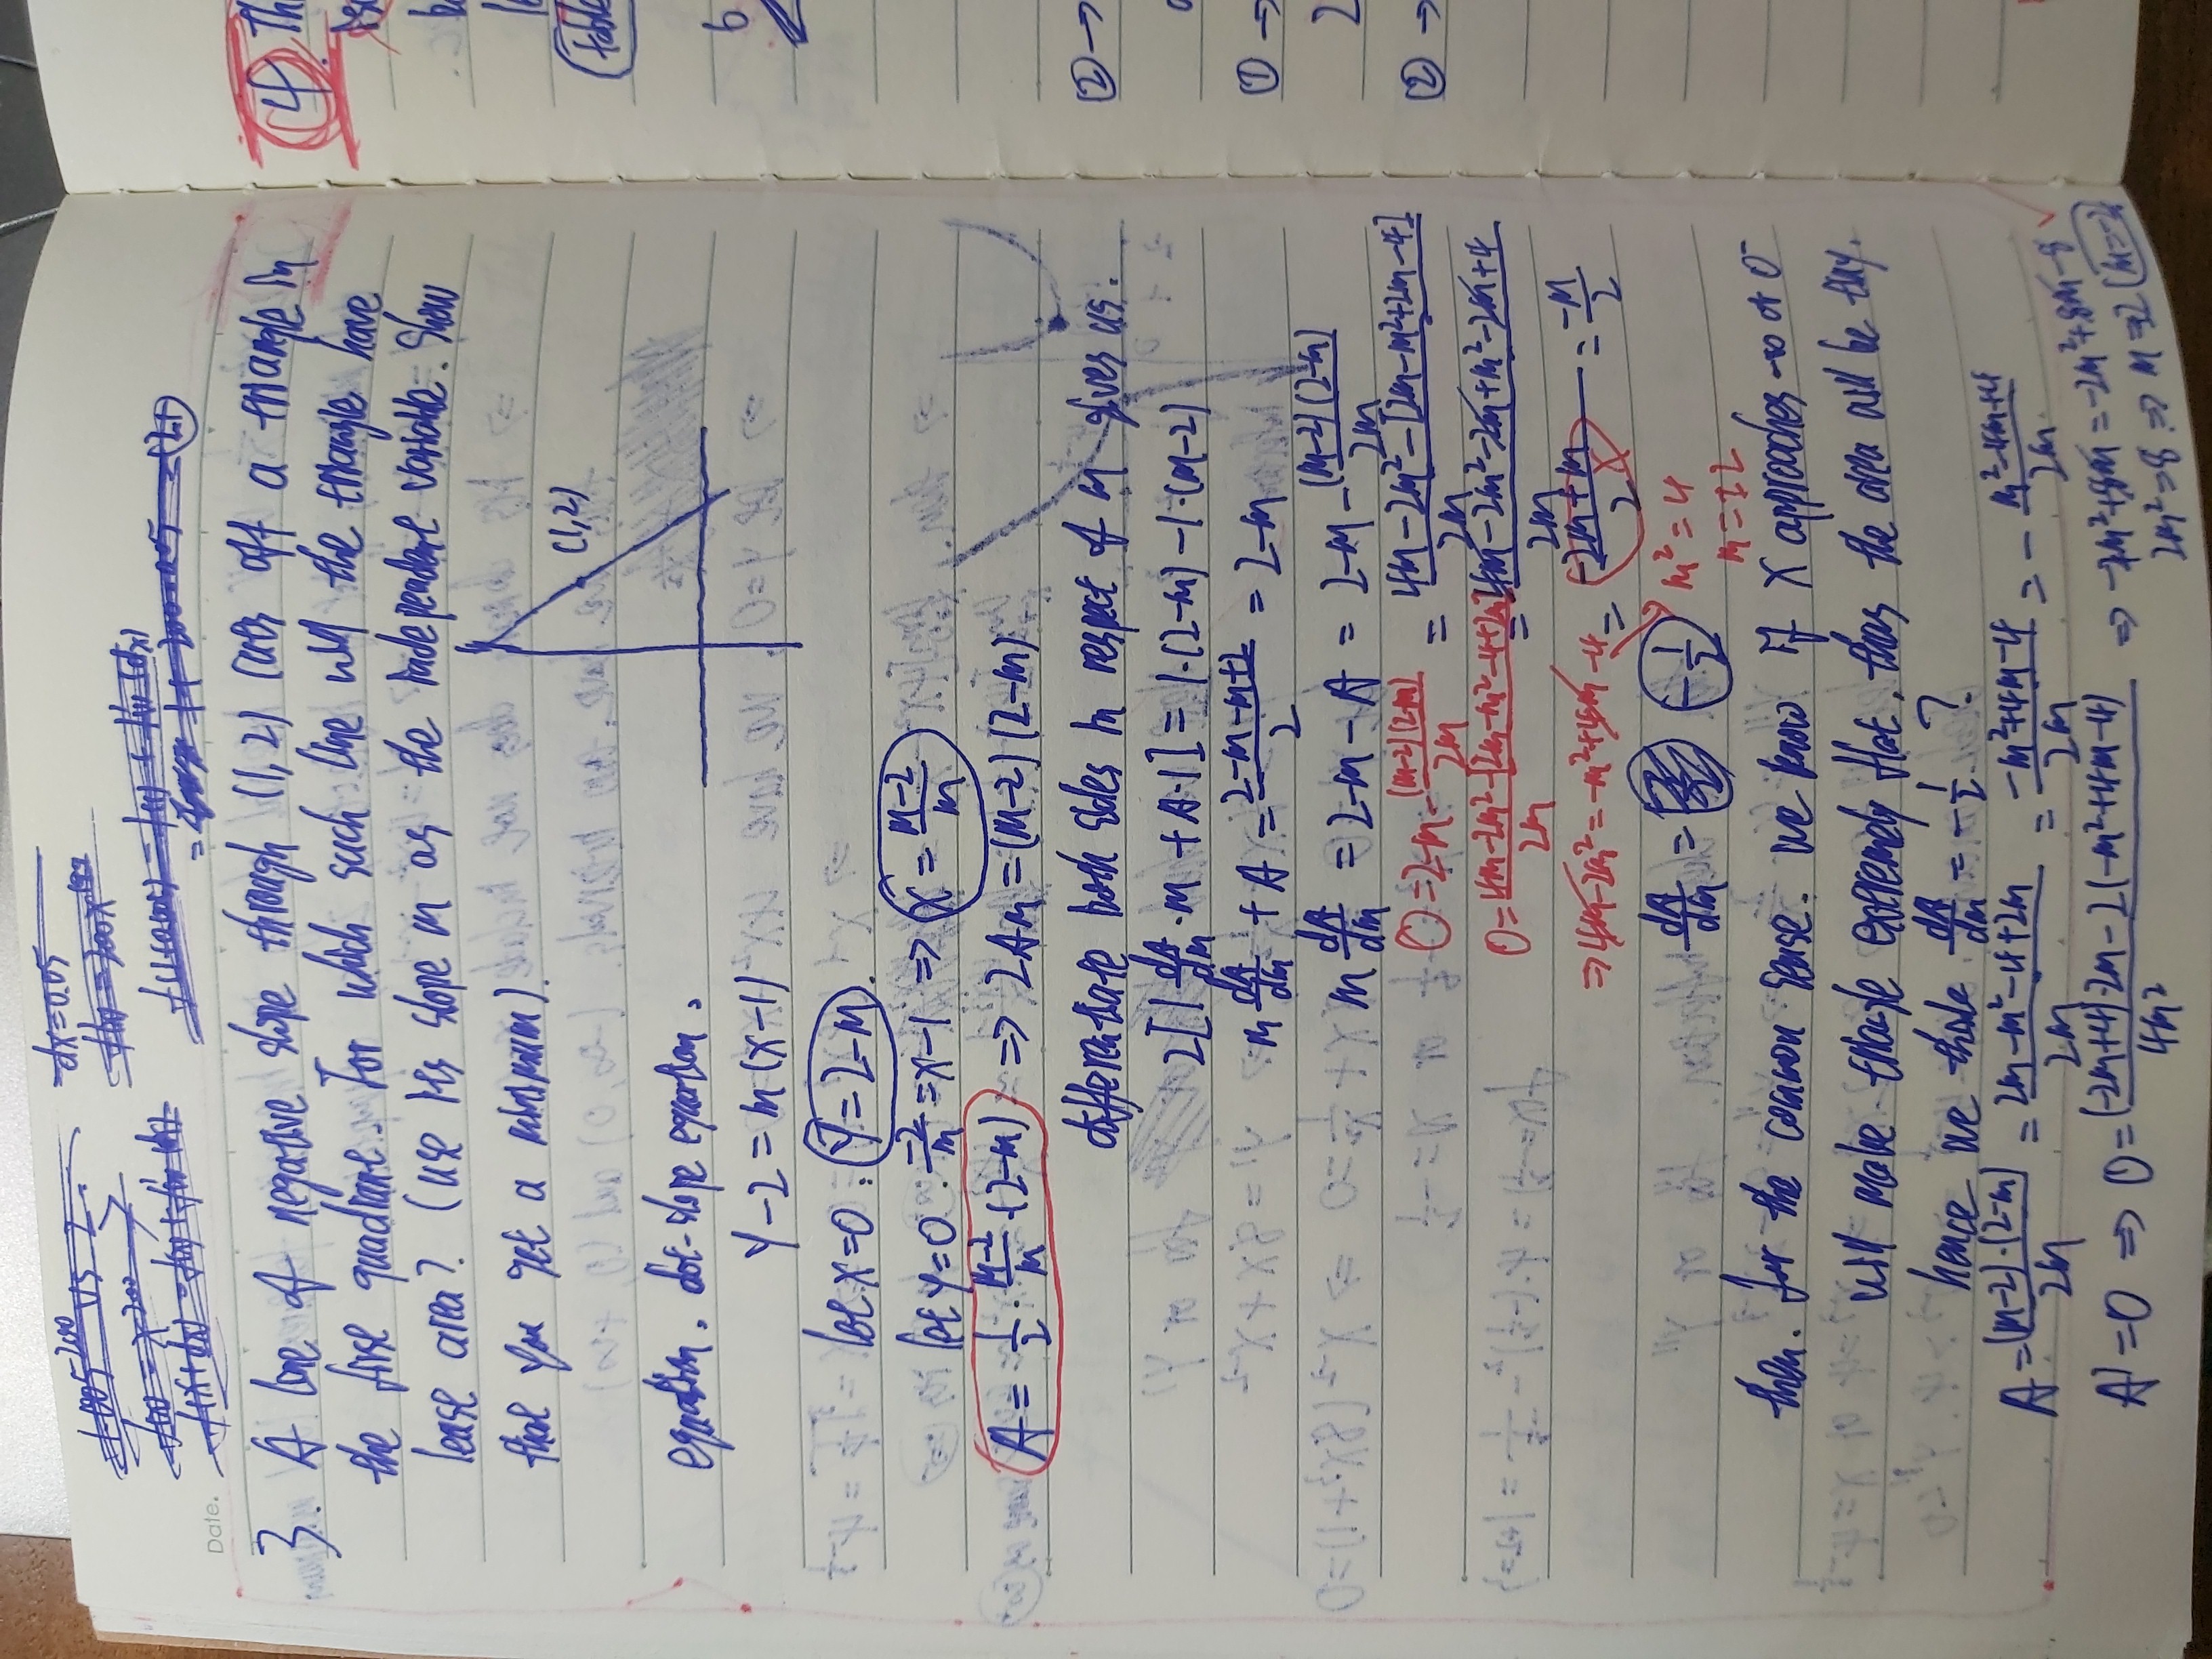 1.005^200 vs 2
dx = 0.05
f(x) = x^200
f'(x) = 200x^199
f(x+dx) = f(x) + f'(x)(dx)
Date.
3. A line of negative slope through (1,2) cuts off a triangle in
the first quadrant. For which such line will the triangle have
least area? (use its slope m as the independent variable. Show
that you get a minimum).
(1,2)
equation. dot-slope equation.
y-2 = m(x-1)
let x=0 : y = 2-m.
let y=0 . -2/m = x-1 => x = (m-2)/m
A = 1/2 · (m-2)/m · (2-m) => 2Am = (m-2)(2-m)
differentiate both sides in respect of m gives us.
2[1 dA/dm · m + A·1] = 1·(2-m) - 1·(m-2)
m dA/dm + A = (2-m-m+2)/2 = 2-m
m dA/dm = 2-m-A = 2-m - (m-2)(2-m)/2m
0 = 2-m - (m-2)(2-m)/2m
= (4m-2m²-[2m-m²+2m-4])/2m
0 = (4m-2m²-[2m-m²-4+2m])/2m
= (4m-2m²-2m+m²-2m+4)/2m
=> 4m-2m² = -m²+4m-4
= (-2m+m)/2 = -m/2
dA/dm = -1/2
m² = 4
m = ±2
then. for the common sense. we know if x approaches -∞ or 0⁻
will make triangle extremely flat, thus the area will be tiny.
hence we think dA/dm = -1/2 ?
A = (m-2)·(2-m)/2m = (2m-m²-4+2m)/2m = (-m²+4m-4)/2m = - (m²-4m+4)/2m
A' = 0 => 0 = ((-2m+4)·2m - 2(-m²+4m-4))/4m² => -4m²+8m = -2m²+8m-8
2m² = 8 => m = ±2 (m=-2)
4. Th
6
② →
① →
2
② →